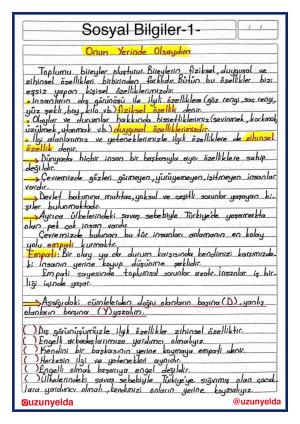 Sosyal Bilgiler-1-
Onun Yerinde Olsaydım
Toplumu bireyler oluşturur. Bireylerin, fiziksel, duygusal ve
zihinsel özellikleri birbirinden farklıdır. Bütün bu özellikler bizi
eşsiz yapan kişisel özelliklerimizdir.
• İnsanların dış görünüşü ile ilgili özelliklere (göz rengi, saç rengi,
yüz şekli, boy, kilo vb.) fiziksel özellik denir.
• Olaylar ve durumlar hakkında hissettiklerimiz (sevinmek, korkmak,
üzülmek, utanmak vb.) duygusal özelliklerimizdir.
• İlgi alanlarımız ve yeteneklerimizle ilgili özelliklere de zihinsel
özellik denir.
→ Dünyada hiçbir insan bir başkasıyla aynı özelliklere sahip
değildir.
→ Çevremizde gözleri görmeyen, yürüyemeyen, işitmeyen insanlar
vardır.
→ Devlet bakımına muhtaç, yoksul ve çeşitli sorunlar yaşayan ki-
şiler bulunmaktadır.
→ Ayrıca ülkelerindeki savaş sebebiyle Türkiye'de yaşamakta
olan pek çok insan vardır.
Çevremizde bulunan bu tür insanları anlamanın en kolay
yolu empati kurmaktır.
Empati: Bir olay ya da durum karşısında kendimizi karşımızda-
ki insanın yerine koyup düşünme şeklidir.
Empati sayesinde toplumsal sorunlar azalır. İnsanlar iş bir-
liği içinde yaşar.
→ Aşağıdaki cümlelerden doğru olanların başına (D), yanlış
olanların başına (Y) yazalım.
( ) Dış görünüşümüzle ilgili özellikler zihinsel özelliktir.
( ) Engelli arkadaşlarımıza yardımcı olmalıyız.
( ) Kendini bir başkasının yerine koymaya empati denir.
( ) Herkesin ilgi ve yetenekleri aynıdır.
( ) Engelli olmak başarıya engel değildir.
( ) Ülkelerindeki savaş sebebiyle Türkiye'ye sığınmış olan çocuk-
lara yardımcı olmalı, kendimizi onların yerine koymalıyız.
@uzunyelda
@uzunyelda